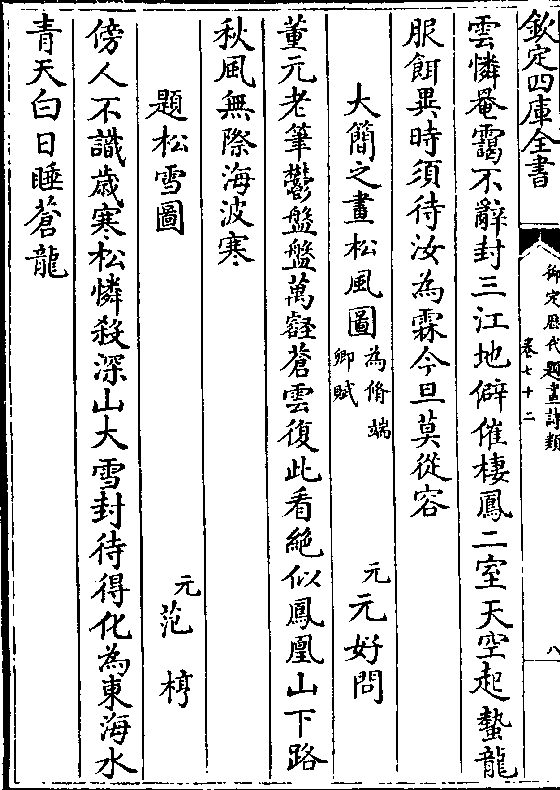 欽定四庫全書
御定歴代題畫詩類
卷七十二
八
雲憐菴靄不辭封三江地僻催棲鳳二室天空起蟄龍
服餌異時須待汝為霖今旦莫從容
大簡之畫松風圖為脩端卿賦 元元好問
董元老筆鬱盤盤萬壑蒼雲復此看絶似鳳凰山下路
秋風無際海波寒
題松雪圖 元范梈
傍人不識歳寒松憐殺深山大雪封待得化為東海水
青天白日睡蒼龍